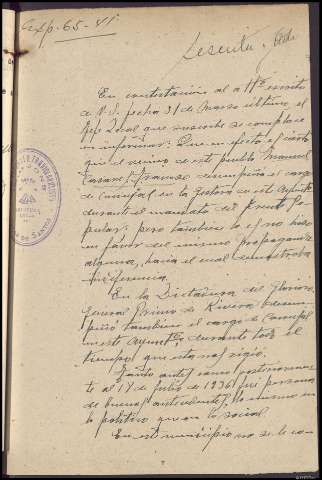 Exp. 65-41
En contestación al att.º escrito
de V.S. fecha 31 de Marzo último, el
Jefe Local que suscribe se complace
en informar: Que en efecto es cierto
que el vecino de este pueblo Manuel
desempeñó el cargo
de Concejal en la Gestora de este Ayunt.º
durante el mandato del Frente Po-
pular; pero también lo es, no hizo
en favor del mismo propaganda
alguna, hacia el cual demostraba
indiferencia.
En la Dictadura del Glorioso
General Primo de Rivera desem-
peñó también el cargo de Concejal
en este Ayunt.º, durante todo el
tiempo que esta nos rigió.
Tanto antes como posteriormen-
te al 18 de Julio de 1936 fué persona
de buenos antecedentes, lo mismo en
lo político que en lo social.
En este municipio no se le con-